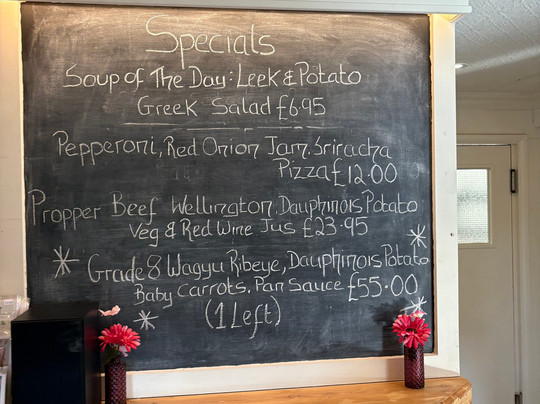 Specials
Soup of The Day: Leek & Potato
Greek Salad £6.95
Pepperoni, Red Onion Jam, Sriracha
Pizza £12.00
Propper Beef Wellington, Dauphinois Potato
Veg & Red Wine Jus £23.95
Grade 8 Wagyu Ribeye, Dauphinois Potato
Baby Carrots, Pan Sauce £55.00
(1 Left)